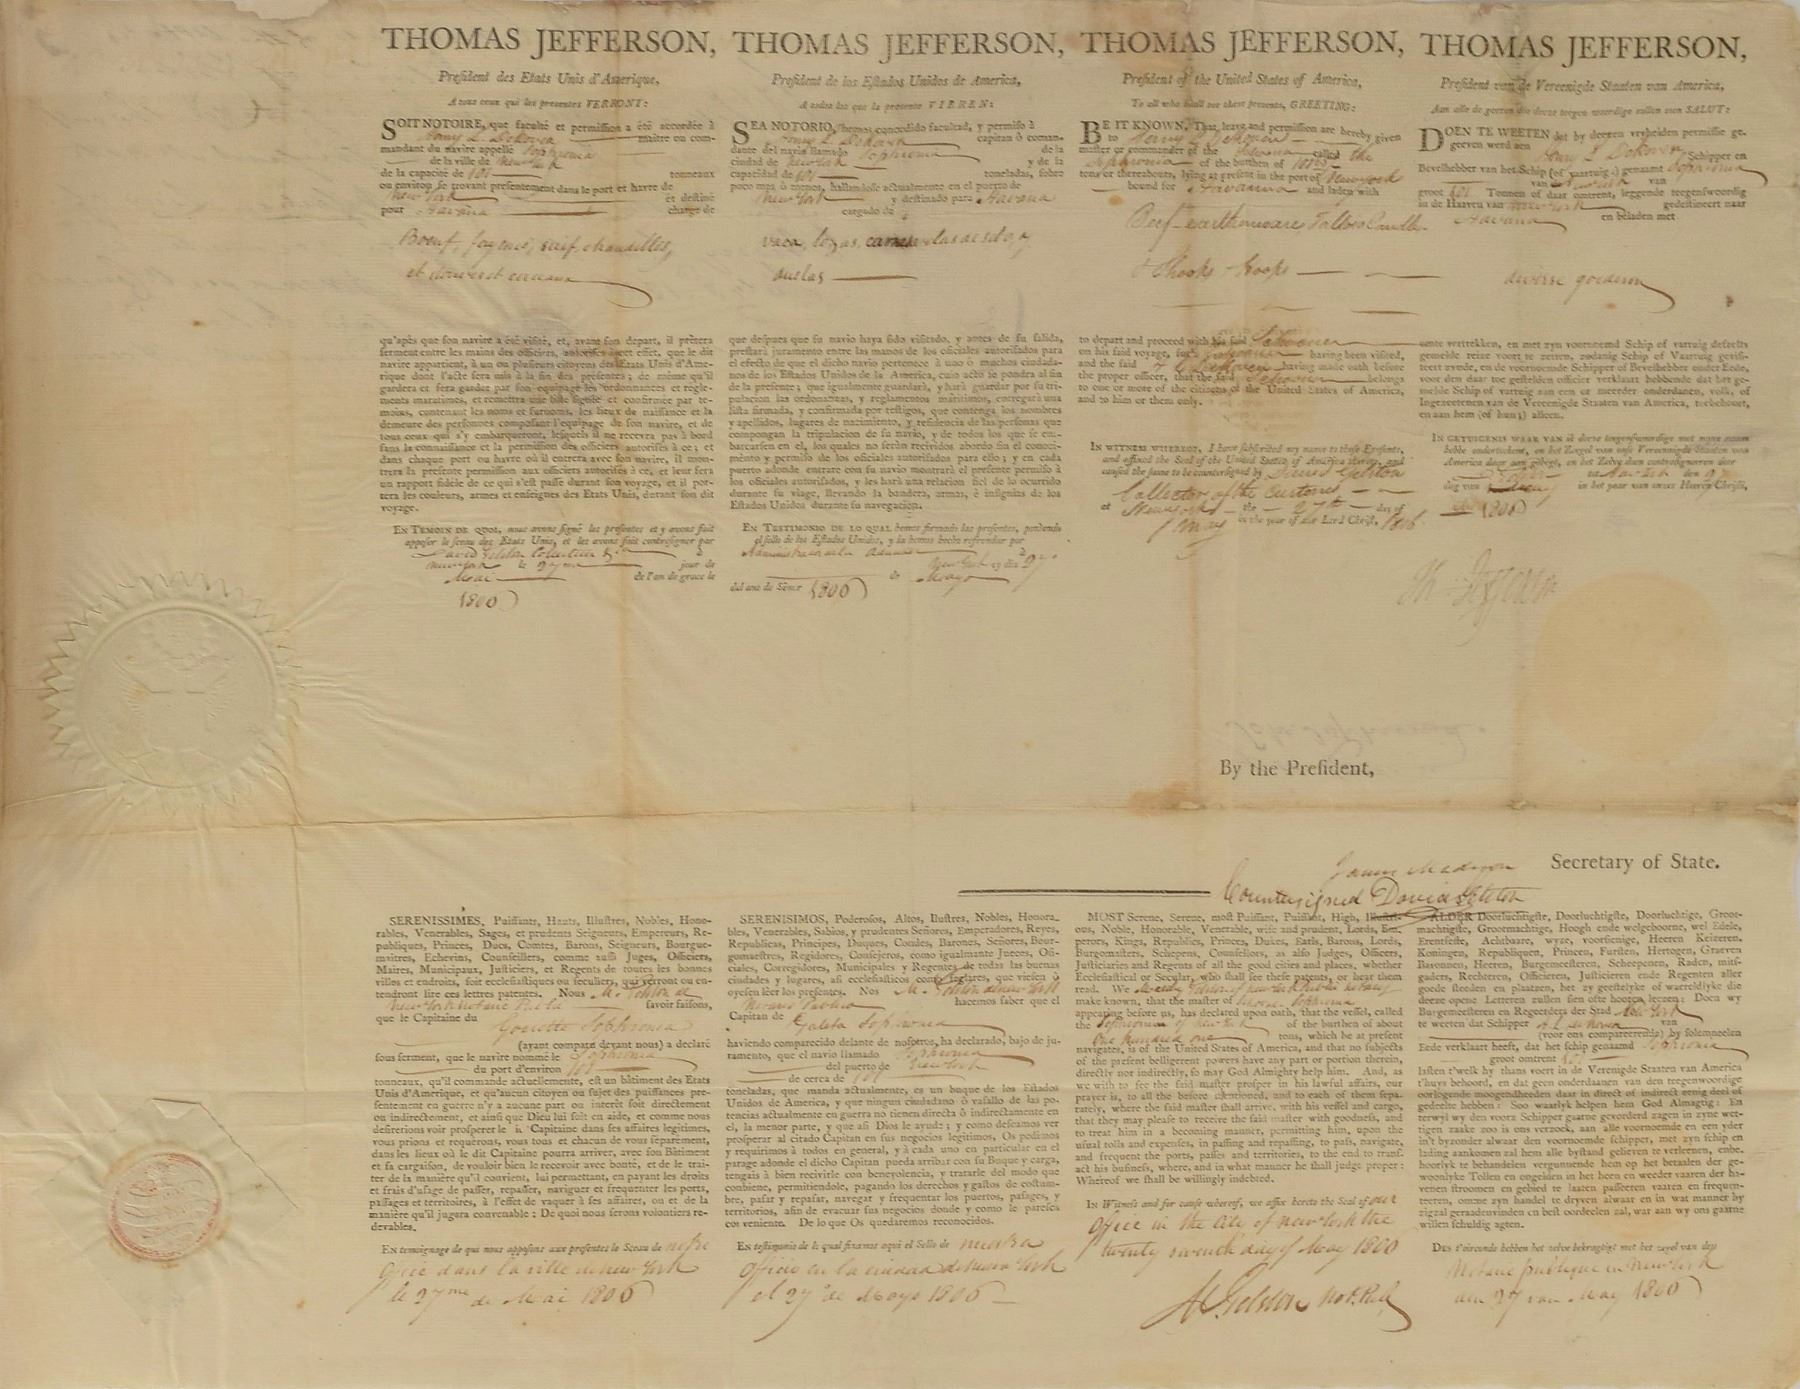 THOMAS JEFFERSON,
President des Etats Unis d'Amerique,
A tous ceux qui les presentes VERRONT:
SOIT NOTOIRE, que faculté et permission a été accordée à
maitre ou com-
mandant du navire appellé Sophronia
de la ville de New York
de la capacité de 101 tonneaux
ou environ se trouvant presentement dans le port et havre de
New York et destiné
pour Havana chargé de
Boeuf, fayence, suif, chandelles,
qu'après que son navire a été visité, et, avant son depart, il prêtera
serment entre les mains des officiers, autorisés à cet effet, que le dit
navire appartient, à un ou plusieurs citoyens des Etats Unis d'Ame-
rique dont l'acte sera mis à la fin des présentes; de même qu'il
gardera et fera garder par son équipage les ordonnances et regle-
ments maratimes, et remettra une liste signée et confirmée par te-
moins, contenant les noms et surnoms, les lieux de naissance et la
demeure des personnes composant l'equipage de son navire, et de
tous ceux qui s'y embarqueront, lesquels il ne recevra pas à bord
sans la connaissance et la permission des officiers autorisés à ce; et
dans chaque port ou havre où il entrera avec son navire, il mon-
trera la présente permission aux officiers autorisés à ce, et leur fera
un rapport fidèle de ce qui s'est passé durant son voyage, et il por-
tera les couleurs, armes et enseignes des Etats Unis, durant son dit
voyage.
EN TEMOIN DE QUOI, nous avons signé les presentes et y avons fait
apposer le sceau des Etats Unis, et les avons fait contresigner par
David Gelston
New York le 27me jour de
Mai de l'an de grace le
1806
THOMAS JEFFERSON,
President de los Estados Unidos de America,
A todos los que la presente VIEREN:
SEA NOTORIO, hemos concedido facultad, y permiso à
capitan ô coman-
dante del navio llamado Sophronia de la
ciudad de New York y de la
capacidad de 101 toneladas, sobre
poco mas ô menos, hallandose actualmente en el puerto de
New York y destinado para Havana
cargado de
vaca, lozas,
duelas
que despues que su navio haya sido visitado, y antes de su salida,
prestará juramento entre las manos de los oficiales autorizados para
el efecto de que el dicho navio pertenece à uno ô muchos ciudada-
nos de los Estados Unidos de la America, cuio acto se pondrá al fin
de la presente; que igualmente guardará, y hará guardar por su tri-
pulacion las ordonanzas, y reglamentos maritimos, entregará una
lista firmada, y confirmada por testigos, que contenga los nombres
y apellidos, lugares de nacimiento, y residencia de las personas que
compongan la tripulacion de su navio, y de todos los que se em-
barcarsen en el, los quales no serán recividos abordo sin el conoci-
mento y permiso de los oficiales autorizados para ello; y en cada
puerto adonde entrare con su navio montrará el presente permiso à
los oficiales autorizados, y les hará una relacion fiel de lo ocurrido
durante su viage, llevando la bandera, armas, è insignias de los
Estados Unidos durante su navegacion.
EN TESTIMONIO DE LO QUAL hemos firmado las presentes, poniendo
el sello de los Estados Unidos, y la hemos hecho refrendar por
New York el dia 27
de Mayo
del ano de Senor 1806
THOMAS JEFFERSON,
President of the United States of America,
To all who shall see these presents, GREETING:
BE IT KNOWN, That leave and permission are hereby given
to
master or commander of the Schooner called the
Sophronia of the burthen of
tons or thereabouts, lying at present in the port of New York
bound for Havanna and laden with
Beef, earthenware, Tallow Candles
to depart and proceed with his said Schooner
on his said voyage, such Schooner having been visited,
and the said having made oath before
the proper officer, that the said Schooner belongs
to one or more of the citizens of the United States of America,
and to him or them only.
IN WITNESS WHEREOF, I have subscribed my name to these Presents,
and affixed the Seal of the United States of America thereto, and
caused the same to be countersigned by David Gelston
Collector of the Customs
at New York the 27th day of
May in the year of our Lord Christ, 1806
Th: Jefferson
By the President,
James Madison Secretary of State.
Countersigned David Gelston
THOMAS JEFFERSON,
President van de Vereenigde Staaten van America,
Aan alle de geenen die deeze tegen woordige zullen zien SALUT:
DOEN TE WEETEN dat by deezen vryheiden permissie ge-
geeven werd aen Schipper en
Bevelhebber van het Schip (of vaartuig) genaamt Sophronia
van New York van
groot 101 Tonnen of daar omtrent, leggende teegenswoordig
in de Haaven van New York gedestineert naar
Havana en beladen met
diverse goederen
omte vertrekken, en met zyn voornoemd Schip of vartuig deselfs
gemelde reize voort te zetten, zodanig Schip of Vaartuig gevisi-
teert zynde, en de voornoemde Schipper of Bevelhebber onder Eede,
voor den daar toe gestelden officier verklaart hebbende dat het ge-
melde Schip of vartuig aan een or meerder onderdanen, volk, of
Ingezeetenen van de Vereenigde Staaten van America, toebehoort,
en aan hem (of hun) alleen.
IN GETUIGENIS WAAR VAN
1806
SERENISSIMES, Puissants, Hauts, Illustres, Nobles, Hono-
rables, Venerables, Sages, et prudents Seigneurs, Empereurs, Re-
publiques, Princes, Ducs, Comtes, Barons, Seigneurs, Bourgue-
maitres, Echevins, Counseillers, comme aussi Juges, Officiers,
Maires, Municipaux, Justiciers, et Regents de toutes les bonnes
villes et endroits, soit ecclesiastiques ou seculiers, qui verront ou en-
tendront lire ces lettres patentes. Nous M. Gelston de
New York notaire Public savoir faisons,
que le Capitaine du
Goelette Sophronia
(ayant comparu devant nous) a declaré
sous serment, que le navire nommé le Sophronia
du port d'environ 101
tonneaux, qu'il commande actuellement, est un bâtiment des Etats
Unis d'Amerique, et qu'aucun citoyen ou sujet des puissances pre-
sentement en guerre n'y a aucune part ou interêt soit directement
ou indirectement, et ainsi que Dieu lui soit en aide, et comme nous
desirerions voir prosperer le it Capitaine dans ses affaires legitimes,
vous prions et requerons, vous tous et chacun de vous separement,
dans les lieux où le dit Capitaine pourra arriver, avec son Bâtiment
et sa cargaison, de vouloir bien le recevoir avec bonté, et de le trai-
ter de la manière qu'il convient, lui permettant, en payant les droits
et frais d'usage de passer, repasser, naviguer et frequenter les ports,
passages et territoires, à l'effet de vaquer à ses affaires, ou et de la
manière qu'il jugura convenable: De quoi nous serons volontiers re-
devables.
En temoignage de qui nous apposons aux presentes le Sceau de notre
Office dans la ville de New York
le 27me de Mai 1806
SERENISIMOS, Poderosos, Altos, Ilustres, Nobles, Honora-
bles, Venerables, Sabios, y prudentes Señores, Emperadores, Reyes,
Republicas, Principes, Duques, Condes, Barones, Señores, Bour-
gomaestres, Regidores, Consejeros, como igualmante Jueces, Ofi-
ciales, Corregidores, Municipales y Regentes de todas las buenas
ciudades y lugares, asi ecclesiasticos como seglares, que viesen ô
oyesen leer los presentes. Nos M. Gelston de New York
Notario Publico hacemos saber que el
Capitan de
Goleta Sophronia
haviendo comparecido delante de nosotros, ha declarado, bajo de ju-
ramento, que el navio llamado Sophronia
del puerto de New York
de cerca de 101
toneladas, que manda actualmente, es un buque de los Estados
Unidos de America, y que ningun ciudadano ô vasallo de las po-
tencias actualmente en guerra no tienen directa ô indirectamente en
el, la menor parte, y que asi Dios le ayude; y como deseamos ver
prosperar al citado Capitan en sus negocios legitimos, Os pedimos
y requirimos à todos en general, y à cada uno en particular en el
parage adonde el dicho Capitan pueda arribar con su Buque y carga,
tengais à bien recivirle con benevolencia, y tratarle del modo que
conbiene, permitiendole, pagando los derechos y gastos de costum-
bre, pasar y repasar, navegar y frequentar los puertos, pasages, y
territorios, afin de evacuar sus negocios donde y como le paresca
conveniente. De lo que Os quedaremos reconocidos.
En testimonio de le qual firamos aqui el Sello de nuestra
Officio en la ciudad de Nueva York
el 27 de Mayo 1806
MOST Serene, Serene, most Puissant, Puissant, High, Illustri-
ous, Noble, Honorable, Venerable, wise and prudent, Lords, Em-
perors, Kings, Republics, Princes, Dukes, Earls, Barons, Lords,
Burgomasters, Schepens, Counsellors, as also Judges, Officers,
Justiciaries and Regents of all the good cities and places, whether
Ecclesiastical or Secular, who shall see these patents, or hear them
read. We
make known, that the master of
appearing before us, has declared upon oath, that the vessel, called
the Sophronia of New York of the burthen of about
One hundred one tons, which he at present
navigates, is of the United States of America, and that no subjects
of the present belligerent powers have any part or portion therein,
directly nor indirectly, so may God Almighty help him. And, as
we wish to see the said master prosper in his lawful affairs, our
prayer is, to all the before mentioned, and to each of them sepa-
rately, where the said master shall arrive, with his vessel and cargo,
that they may please to receive the said master with goodness, and
to treat him in a becoming manner, permitting him, upon the
usual tolls and expenses, in passing and repassing, to pass, navigate,
and frequent the ports, passes and territories, to the end to trans-
act his business, where, and in what manner he shall judge proper:
Whereof we shall be willingly indebted.
IN Witness and for cause whereof, we affix hereto the Seal of our
Office in the City of New York the
twenty seventh day of May 1806
M. Gelston Not. Pub.
AALDER Doorluchtigste, Doorluchtigste, Doorluchtige, Groot-
machtigste, Grootmachtige, Hoogh ende welgeboorne, wel Edele,
Erentfeste, Achtbaare, wyze, voorsienige, Heeren Keizeren,
Koningen, Republiquen, Princen, Fursten, Hertogen, Graeven
Baronnen, Heeren, Burgemeesteren, Scheepenen, Raden, mits-
gaders, Rechteren, Officieren, Justicieren ende Regenten aller
goede steeden en plaatzen, het zy geestelyke of waereldlyke die
deeze opene Letteren zullen sien ofte hooren leezen: Doen wy
Burgemeesteren en Regeerders der Stad New York
te weeten dat Schipper van
(voor ons compareerende) by solemneelen
Eede verklaart heeft, dat het schip genaamd Sophronia
groot omtrent 101
lasten t'welk hy thans voert in de Verenigde Staaten van America
t'huys behoord, en dat geen onderdaanen van den teegenwoordige
oorlogende moogendheeden daar in direct of indirect eenig deel of
gedeelte hebben: Soo waarlyk helpen hem God Almagtig: En
terwyl wy den voorz Schipper gaarne gevorderd zagen in zyne wet-
tigen zaake zoo is ons verzoek, aan alle voornoemde en een yder
in't byzonder alwaar den voornoemde schipper, met zyn schip en
lading aankomen zal hem alle bystand gelieven te verleenen, enbe-
hoorlyk te behandelen vergunnende hem op het betaalen der ge-
woonlyke Tollen en ongelden in het heen en weeder vaaren der ha-
venen stroomen en gebied te laaten passeeren vaaren en frequen-
teeren, omme zyn handel te dryven alwaar en in wat manner hy
zigzal geraadenvinden en best oordeelen zal, waar aan wy ons gaarne
willen schuldig agten.
DES t'oirconde hebben het zelve bekragtigt met het zegel van den
Notaris publique in New York
den 27 van May 1806